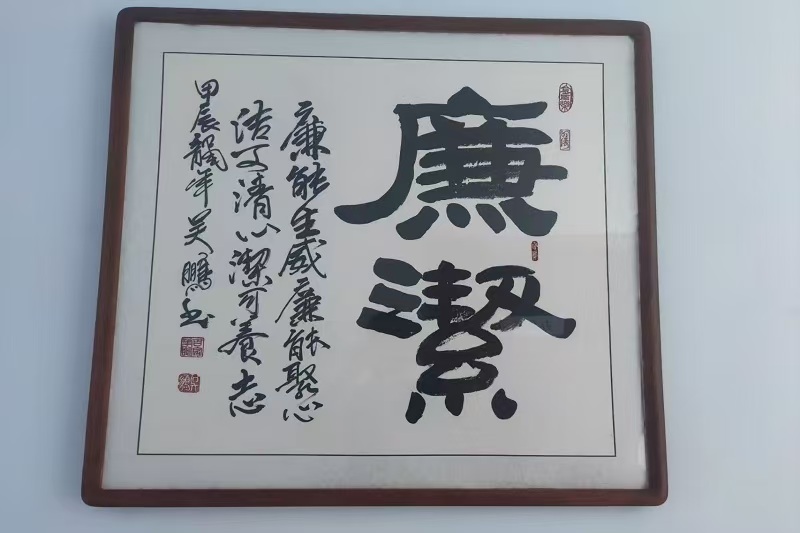 廉潔
廉能生威廉能聚心
洁可清心潔可養志
甲辰龍年吴鵬书